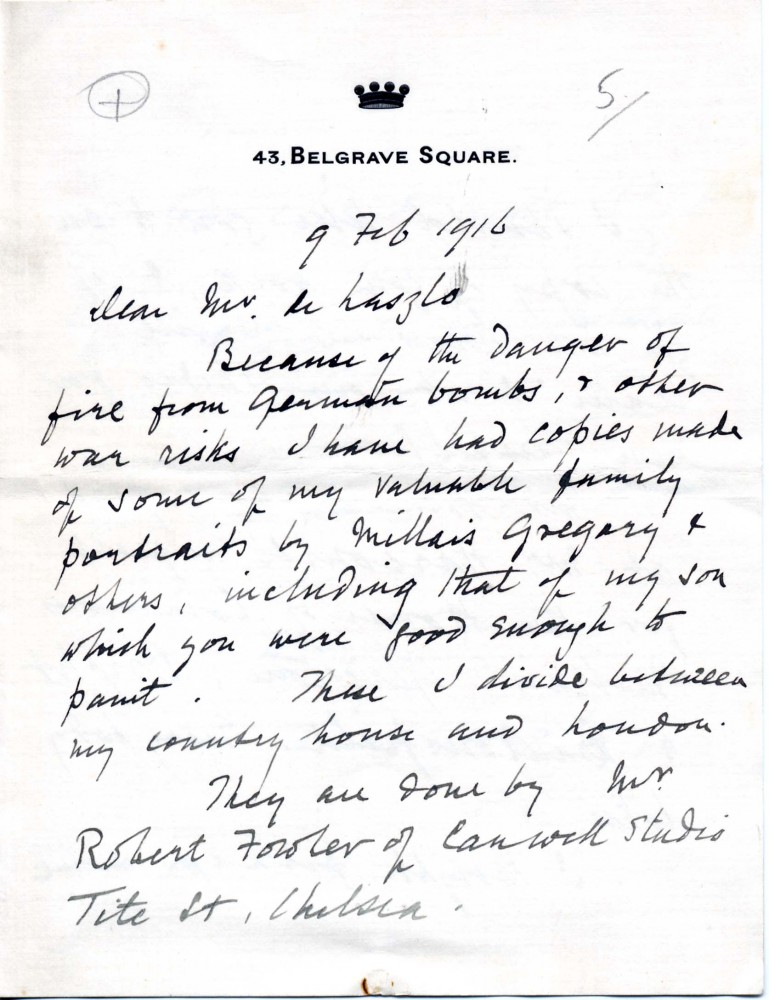 5/
43, BELGRAVE SQUARE.
9 Feb 1916
Dear Mr. de Laszlo
Because of the danger of
fire from German bombs, & other
war risks I have had copies made
of some of my valuable family
portraits by Millais Gregory &
others, including that of my son
which you were good enough to
paint. These I divide between
my country house and London.
They are done by Mr.
Robert Fowler of Canwell Studio
Tite St, Chelsea.